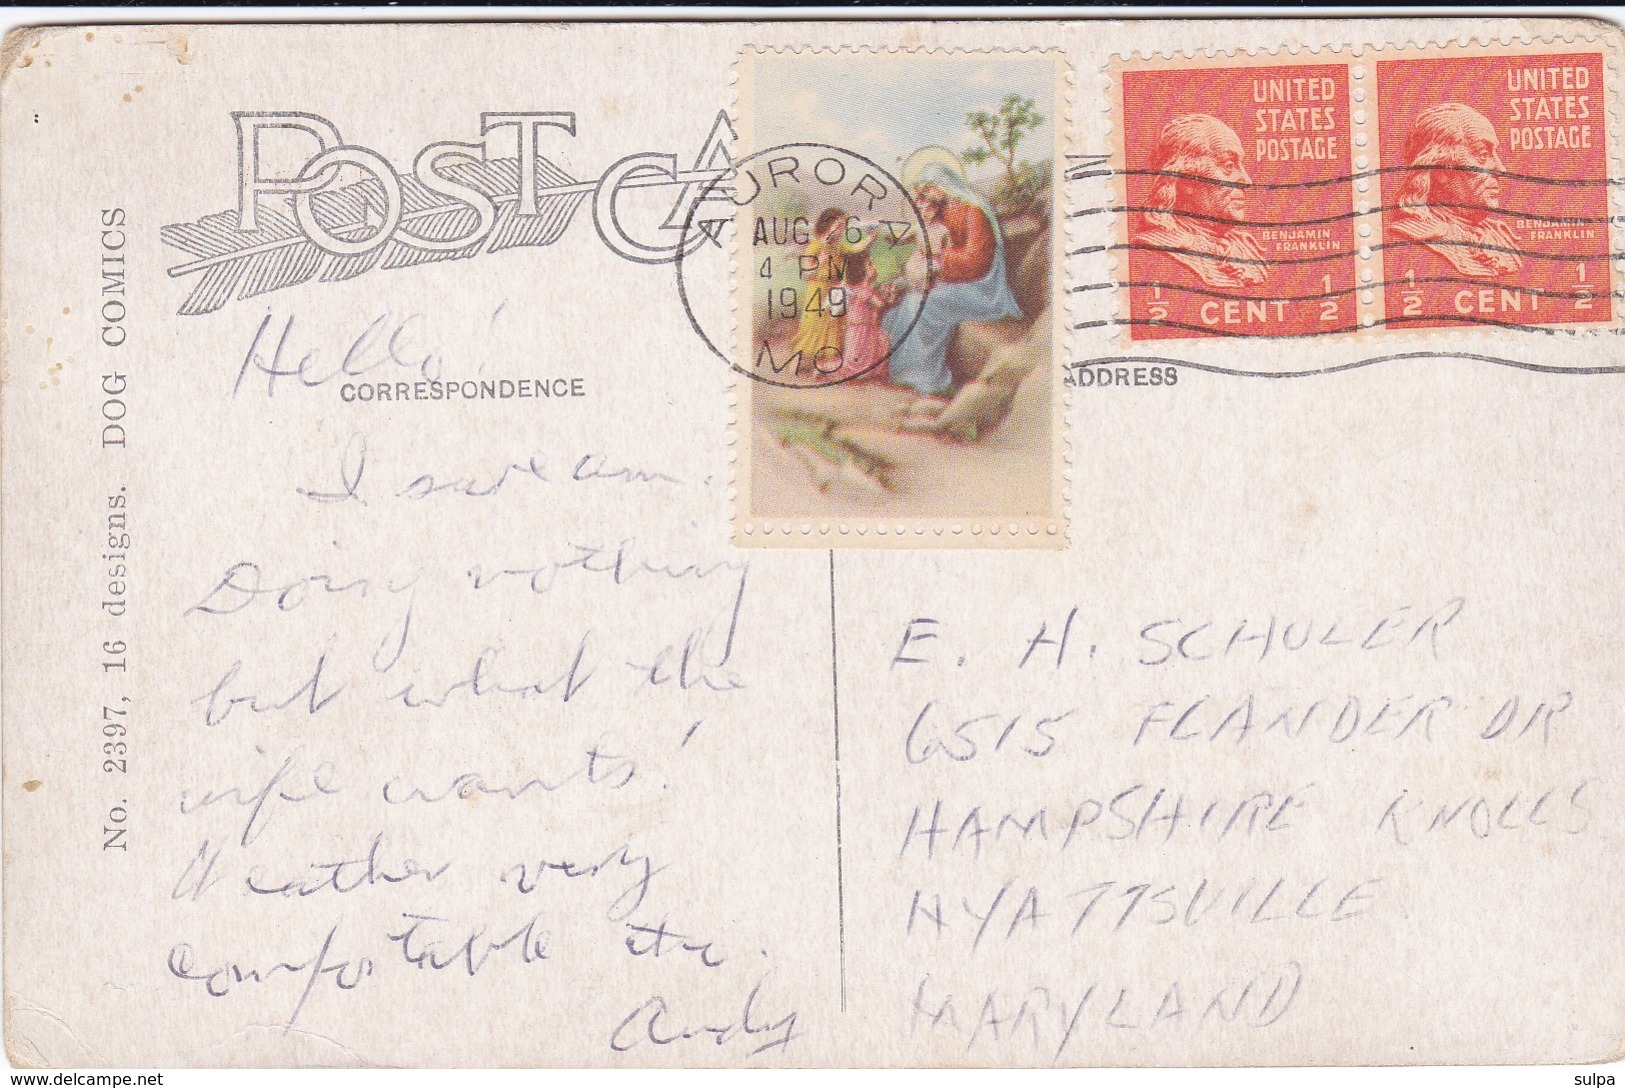 POST CA
UNITED
STATES
POSTAGE
BENJAMIN
FRANKLIN
1/2 CENT 1/2
UNITED
STATES
POSTAGE
BENJAMIN
FRANKLIN
1/2 CENT 1/2
AURORA
AUG 6
4 PM
1949
MO.
CORRESPONDENCE
ADDRESS
No. 2397, 16 designs. DOG COMICS
Hello!
I sure am.
Doing nothing
but what the
wife wants!
Weather very
comfortable etc.
Andy
E. H. SCHULER
6515 FLANDER DR
HAMPSHIRE KNOLLS
HYATTSVILLE
MARYLAND
www.delcampe.net
sulpa